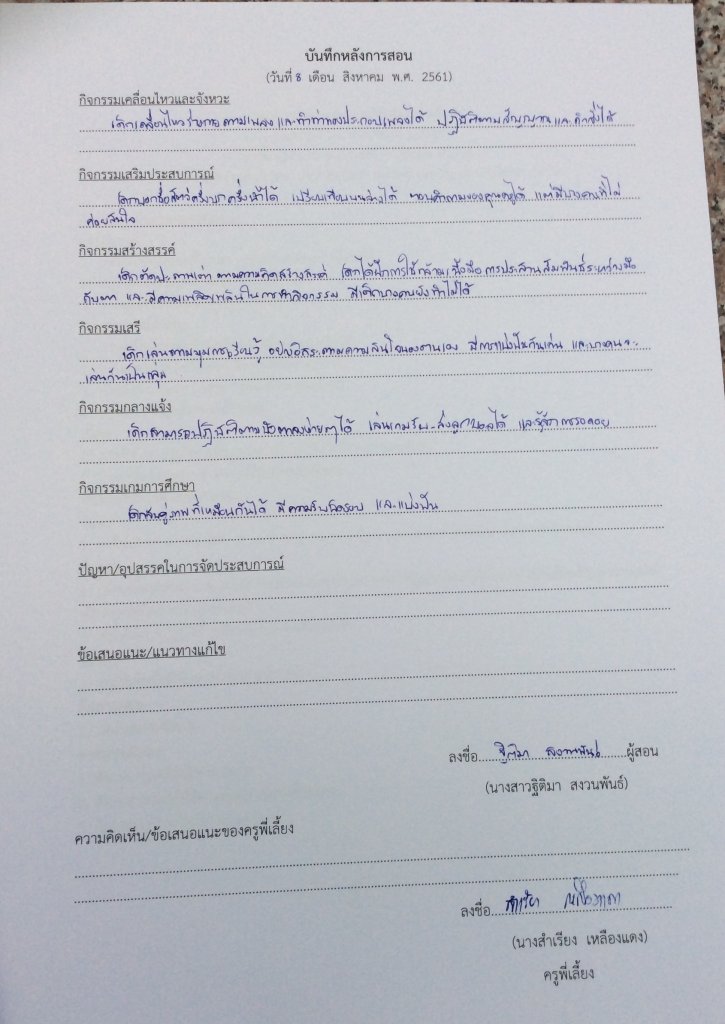 บันทึกหลังการสอน
(วันที่ 8 เดือน สิงหาคม พ.ศ. 2561)
กิจกรรมเคลื่อนไหวและจังหวะ
เด็กเคลื่อนไหวร่างกายตามเพลง และทำท่าทางประกอบเพลงได้ ปฏิบัติตามสัญญาณและคำสั่งได้
กิจกรรมเสริมประสบการณ์
เด็กบอกชื่อสัตว์ครึ่งบกครึ่งน้ำได้ เปรียบเทียบ ได้ ตอบคำถามของคุณครูได้ แต่มีบางคนที่ไม่
ค่อยสนใจ
กิจกรรมสร้างสรรค์
เด็กตัดปะ เต่า ตามความคิดสร้างสรรค์ เด็กได้ฝึกการใช้กล้ามเนื้อมือ การประสานสัมพันธ์ระหว่างมือ
กับตา และมีความเพลิดเพลินในการทำกิจกรรม มีเด็กบางคนยังทำไม่ได้
กิจกรรมเสรี
เด็กเล่นตามมุมการเรียนรู้ อย่างอิสระตามความสนใจของตนเอง มีการแบ่งปันกันเล่น และบางคนจะ
เล่นกันเป็นกลุ่ม
กิจกรรมกลางแจ้ง
เด็กสามารถปฏิบัติตามข้อตกลงง่ายๆได้ เล่นเกมรับ-ส่งลูกบอลได้ และรู้จักการรอคอย
กิจกรรมเกมการศึกษา
เด็กจับคู่ภาพที่เหมือนกันได้ มีความรับผิดชอบ และแบ่งปัน
ปัญหา/อุปสรรคในการจัดประสบการณ์
ข้อเสนอแนะ/แนวทางแก้ไข
ลงชื่อ ฐิติมา สงวนพันธ์ ผู้สอน
(นางสาวฐิติมา สงวนพันธ์)
ความคิดเห็น/ข้อเสนอแนะของครูพี่เลี้ยง
ลงชื่อ สำเรียง เหลืองแดง
(นางสำเรียง เหลืองแดง)
ครูพี่เลี้ยง